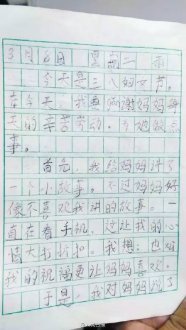 3月8日 星期二 雨
今天是三八妇女节。
在今天，我要感谢妈妈
的辛苦劳动，
事。
首先，我给妈妈讲了
一个小故事。不过妈妈好
像不喜欢我讲的故事。一
直在看手机。这让我的心
情大打折扣。我想，也
我的祝福更让妈妈喜欢。
于是，我对妈妈说了